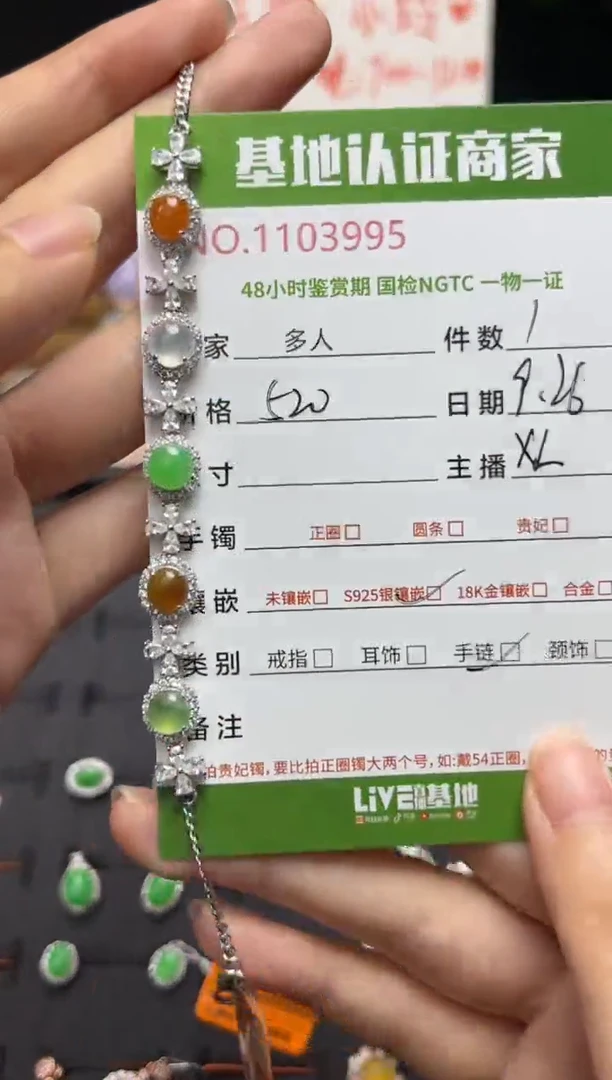 基地认证商家
NO.1103995
48小时鉴赏期 国检NGTC 一物一证
家 多人 件数 1
格 520 日期 9.26
寸 主播 XL
手镯 正圈□ 圆条□ 贵妃□
镶嵌 未镶嵌□ S925银镶嵌☑ 18K金镶嵌□ 合金□
类别 戒指□ 耳饰□ 手链☑ 颈饰□
备注
拍贵妃镯,要比拍正圈镯大两个号,如:戴54正圈,
LIVE基地